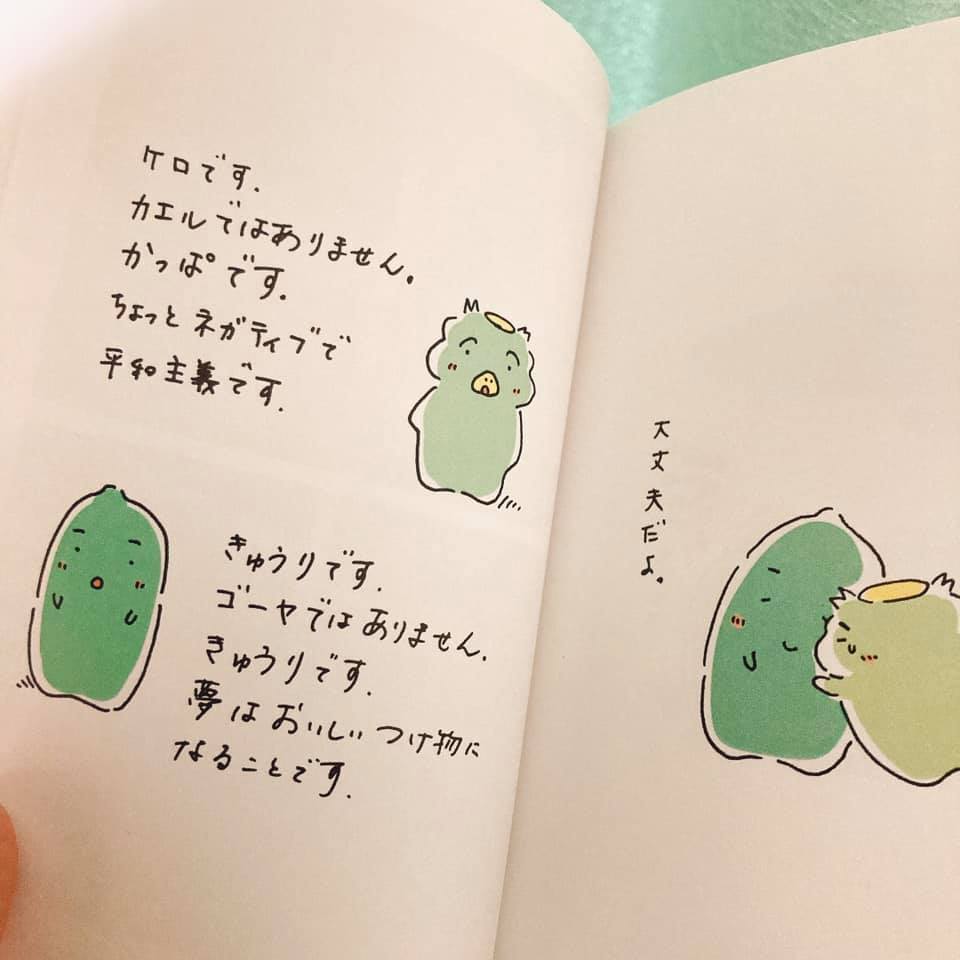 ケロです.
カエルではありません。
かっぱです.
ちょっとネガティブで
平和主義です.
きゅうりです.
ゴーヤではありません.
きゅうりです.
夢はおいしいつけ物に
なることです.
大丈夫だよ。